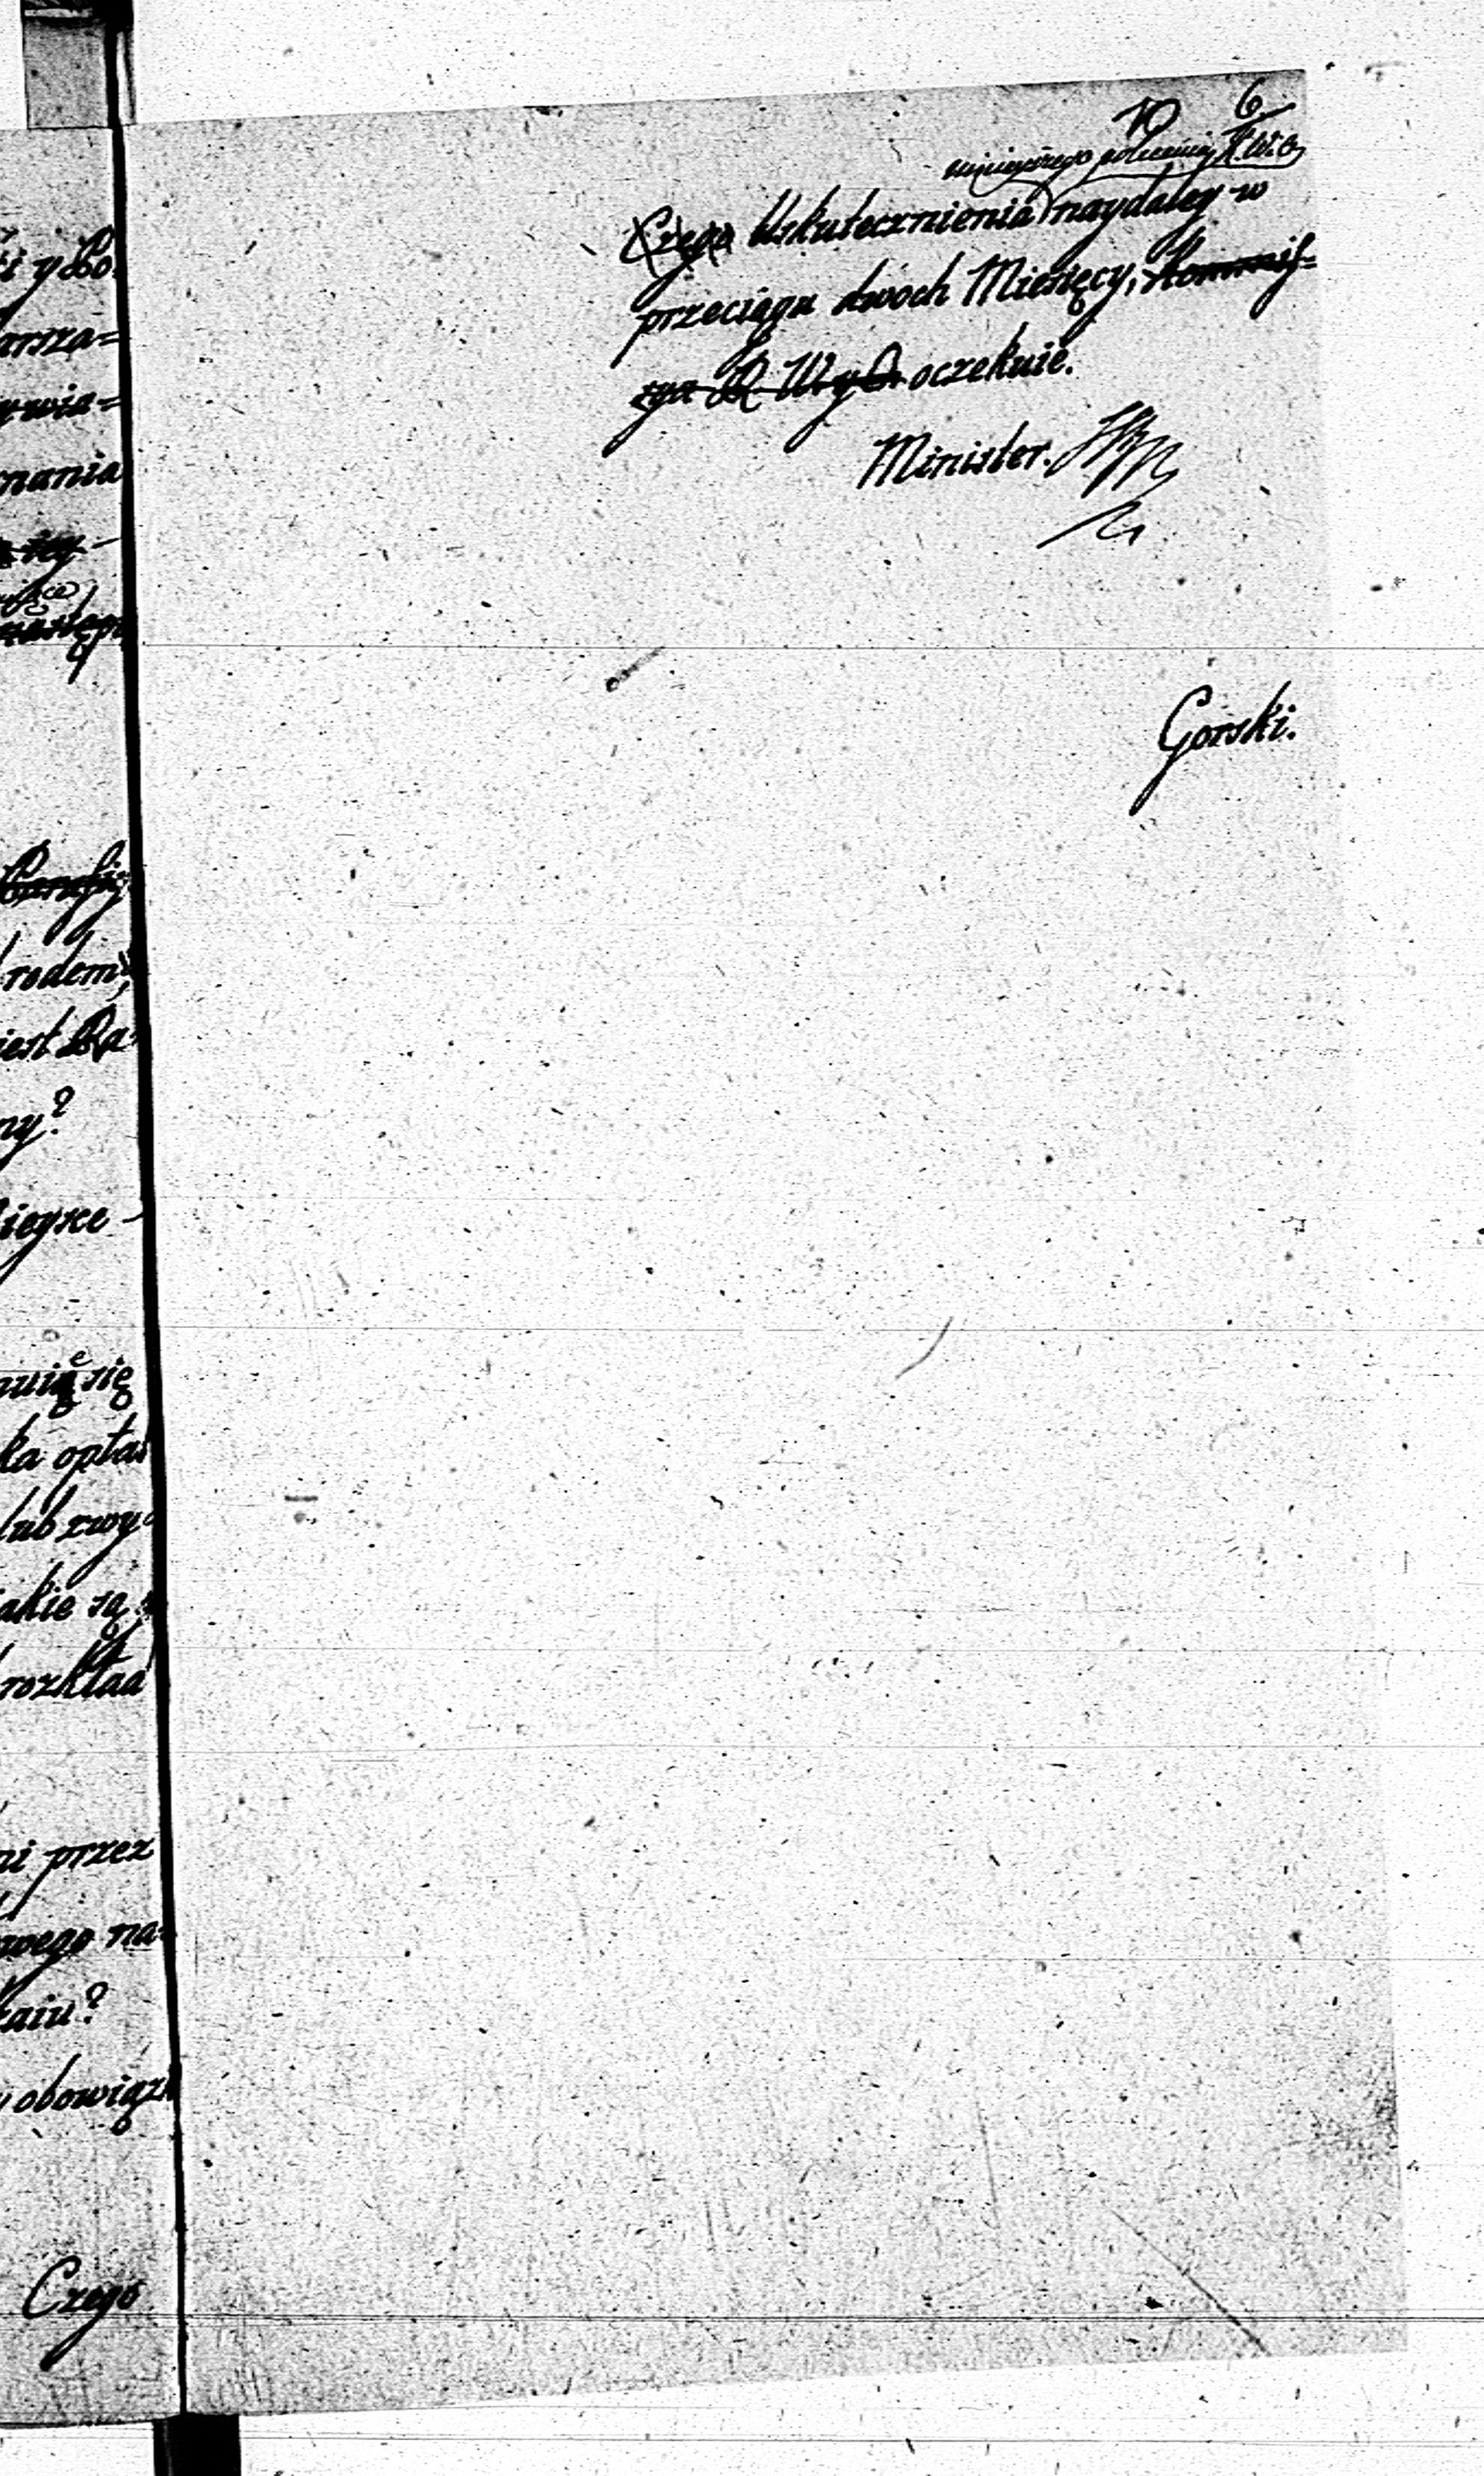 10 6
niniejszego polecenia K.W.O.
Czego Uskutecznienia naydaley w
przeciągu dwoch Miesięcy, Kommis=
sya R. W. y O. oczekuie.
Minister.
Gorski.
i y Bo
arsza=
ywia=
mania
iey
rodem,
iest Ra
ny?
ieysce
nuię się
ka opła
lub zwy
iakie są
rozkład
ni przez
wego na=
kaiu?
obowiązk
Czego